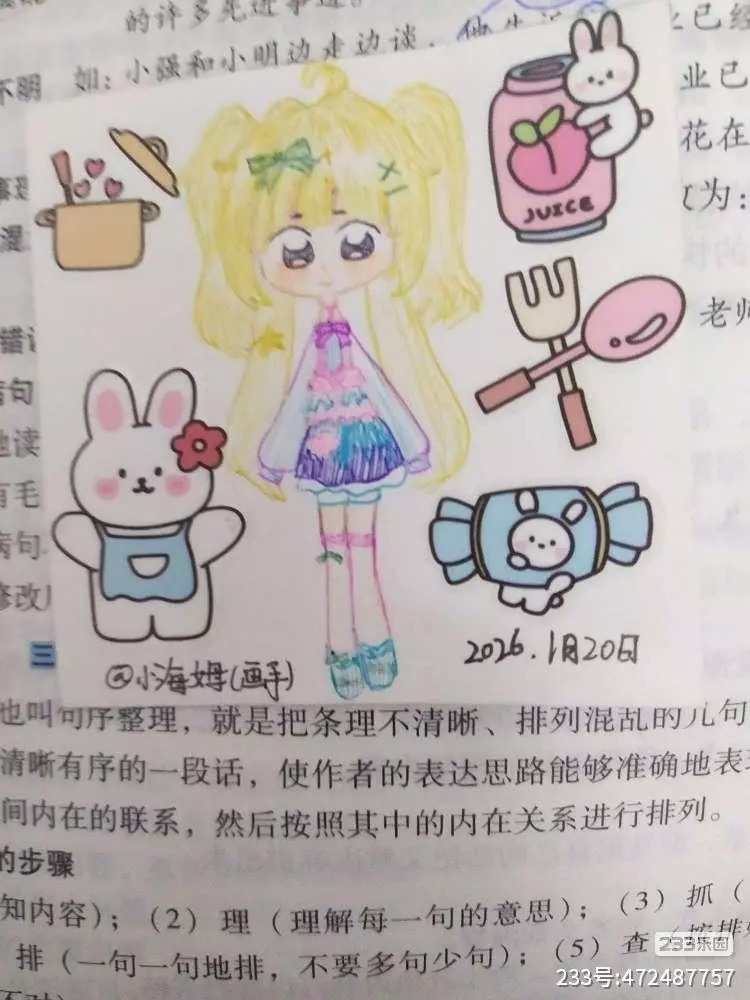 的许多先进事迹。
不明 如：小强和小明边走边谈，他
业已经
业已
花在
为：
JUICE
老师
错
病句
地读
有毛
病句
修改
三
@小海姆(画手)
2026.1月20日
也叫句序整理，就是把条理不清晰、排列混乱的几句
清晰有序的一段话，使作者的表达思路能够准确地表
间内在的联系，然后按照其中的内在关系进行排列。
的步骤
知内容）；（2）理（理解每一句的意思）；（3）抓（
排（一句一句地排，不要多句少句）；（5）查（按排
233乐园
233号:472487757